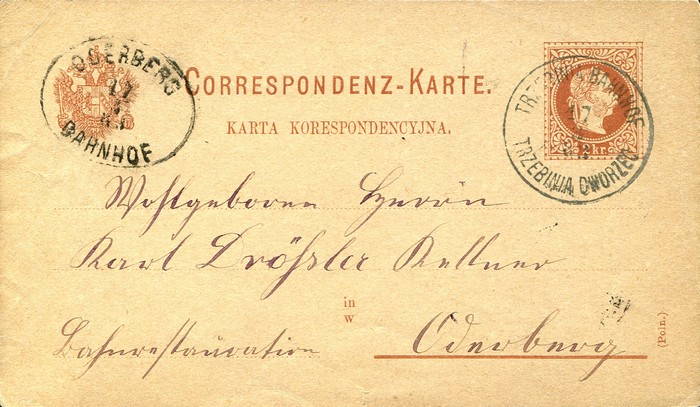 ODERBERG
17
BAHNHOF
CORRESPONDENZ-KARTE.
KARTA KORESPONDENCYJNA.
TRZEBINIA BAHNHOF
17
TRZEBINIA DWORZEC
2 kr.
Wohlgeboren Herrn
Karl Drößler Kellner
in
w
Bahnrestauration Oderberg
(Poln.)